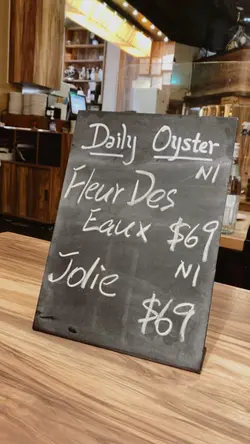 Daily Oyster
N1
Fleur Des
Eaux $69
N1
Jolie
$69